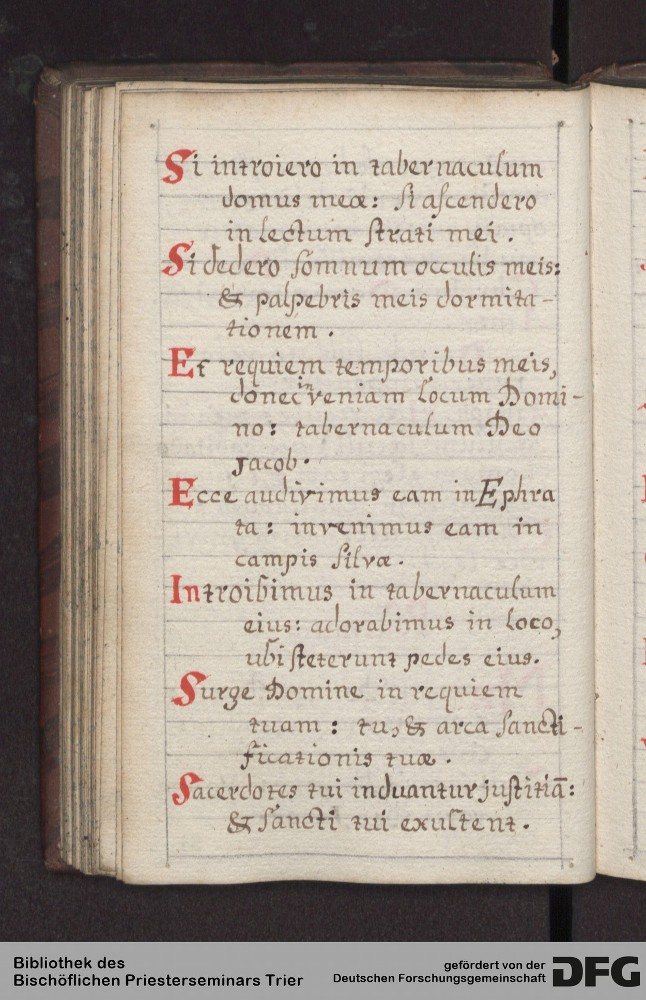 Si introiero in tabernaculum
domus meæ: si ascendero
in lectum strati mei.
Si dedero somnum occulis meis:
& palpebris meis dormita-
tionem.
Et requiem temporibus meis,
donec inveniam locum Domi-
no: tabernaculum Deo
Jacob.
Ecce audivimus eam in Ephra
ta: invenimus eam in
campis silvæ.
Introibimus in tabernaculum
eius: adorabimus in loco,
ubi steterunt pedes eius.
Surge Domine in requiem
tuam: tu, & arca sancti-
ficationis tuæ.
Sacerdotes tui induantur justitiā:
& sancti tui exultent.
Bibliothek des
Bischöflichen Priesterseminars Trier
gefördert von der
Deutschen Forschungsgemeinschaft
DFG